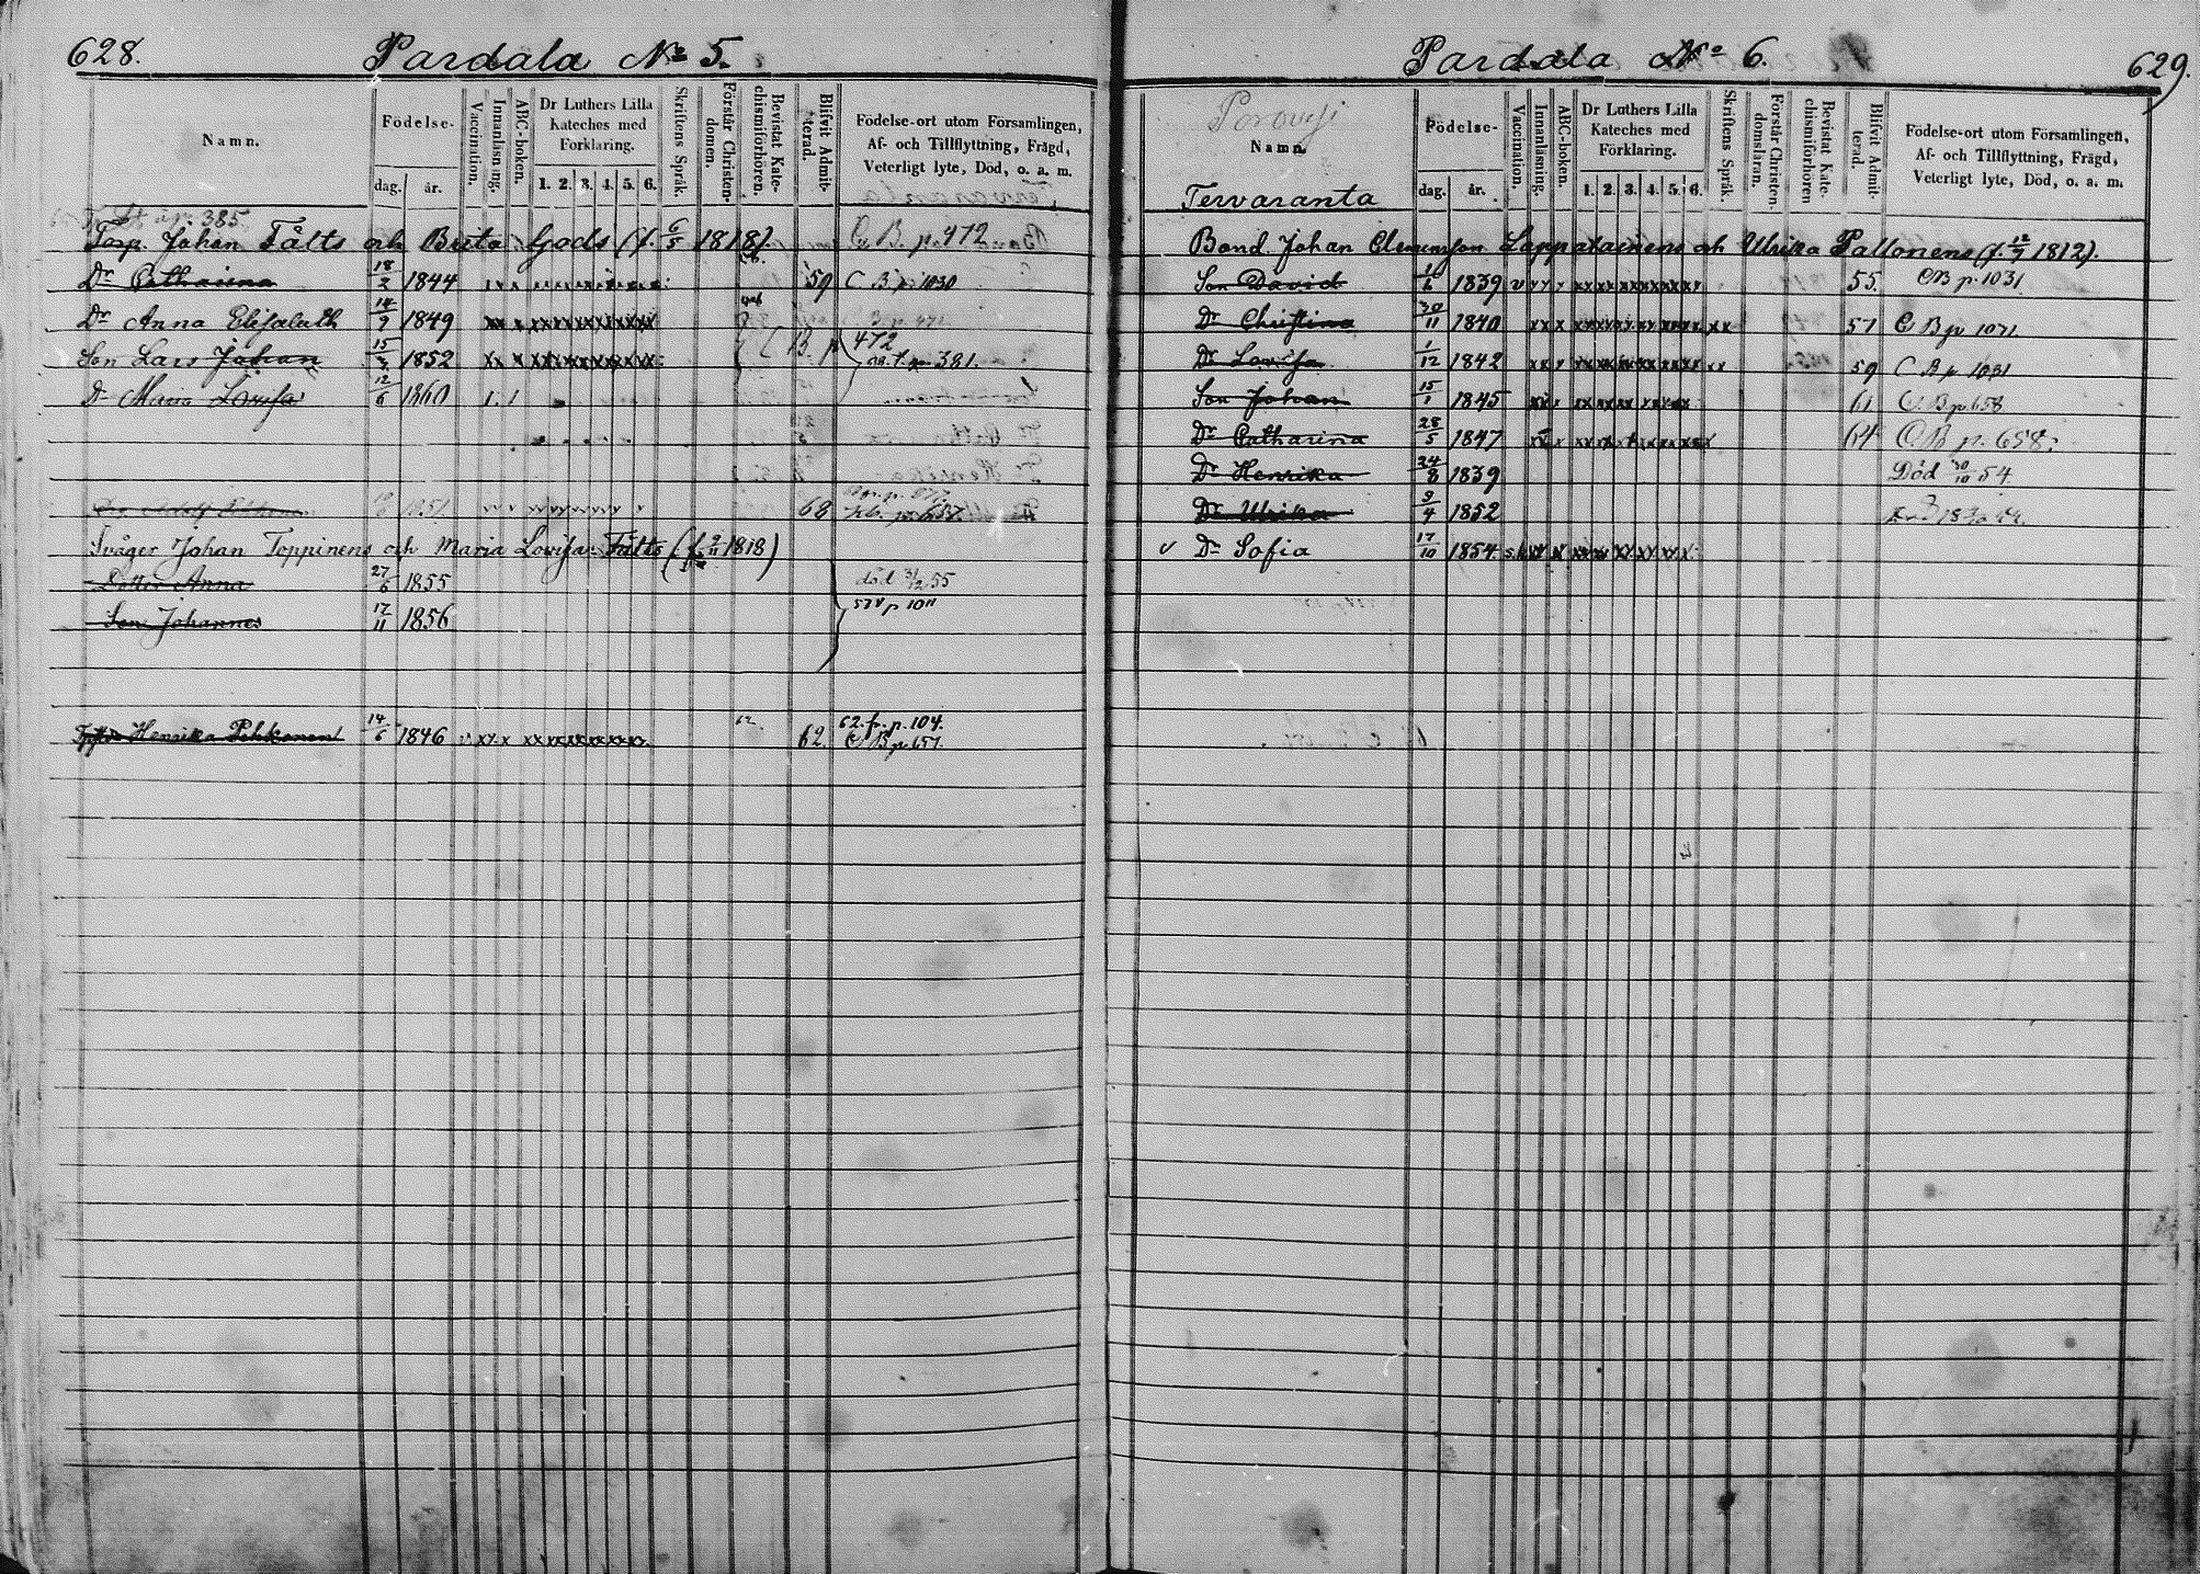 628.
Pardala No 5.
Namn.
Födelse-
dag. år.
Vaccination.
Innanläsning.
ABC-boken.
Dr Luthers Lilla
Kateches med
Forklaring.
1. 2. 3. 4. 5. 6.
Skriftens Språk.
Förstår Christen-
domen.
Bevistat Kate-
chismiförhören.
Blifvit Admit-
terad.
Födelse-ort utom Församlingen,
Af- och Tillflyttning, Frägd,
Veterligt lyte, Död, o. a. m.
385
Torp. Johan Fålts och Brita Gods (f. 6/5 1818). C B. p. 472
Dr Catharina 18/2 1844 59 C B p. 1030
Dr Anna Elisabeth 14/9 1849
Son Lars Johan 15/3 1852 C B. p 472
p. 381.
Dr Maria Lovisa 12/6 1860
68 p. 657.
Svåger Johan Toppinens och Maria Lovisa Fålts (f. 2/11 1818)
Dotter Anna 27/6 1855 död 3/12 55
Son Johannes 17/11 1856 57 p 1011
Henrika Pihkonen 14/6 1846 v xx x 62. 62. fr. p. 104.
C B p 657.
Pardala No 6.
629.
Porovesi
Namn.
Födelse-
dag. år.
Vaccination.
Innanläsning.
ABC-boken.
Dr Luthers Lilla
Kateches med
Förklaring.
1. 2. 3. 4. 5. 6.
Skriftens Språk.
Förstår Christen-
domsläran.
Bevistat Kate-
chismiförhören
Blifvit Admit-
terad.
Födelse-ort utom Församlingen,
Af- och Tillflyttning, Frägd,
Veterligt lyte, Död, o. a. m.
Tervaranta
Bond. Johan Clemensson Lappalainens och Ulrika Pallonens (f. 12/7 1812).
Son David 1/6 1839 55. CB p. 1031
Dr Christina 30/11 1840 57 C B p 1071
Dr Lovisa 1/12 1842 59 C B p 1031
Son Johan 15/1 1845 61 C B p 658
Dr Catharina 28/5 1847 64 C B p. 658.
Dr Henrika 24/8 1839 Död 30/10 54
Dr Ulrika 9/4 1852
v Dr Sofia 17/10 1854.